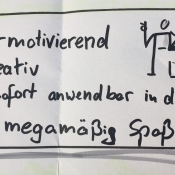 rmotivierend
eativ
ofort anwendbar in d
megamäßig Spaß